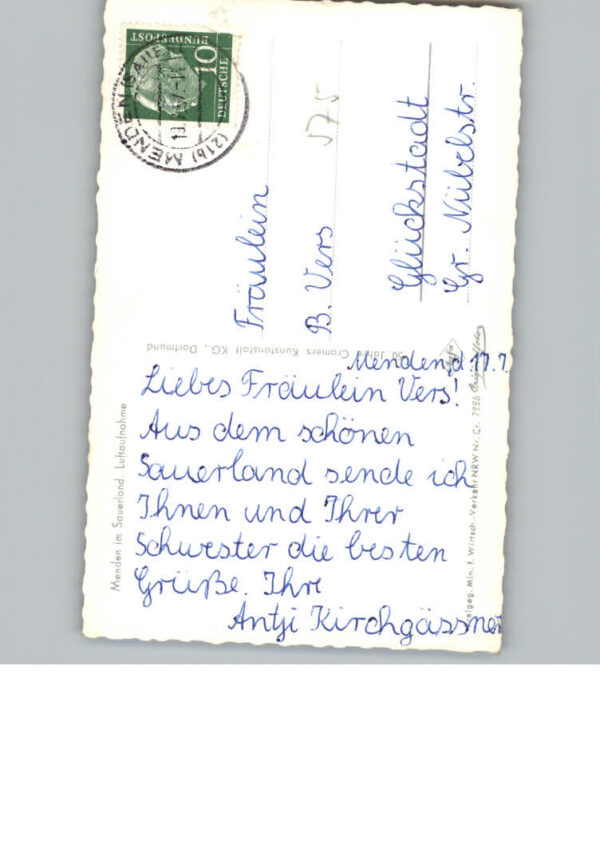 Menden d 17.7.
Liebes Fräulein Vers!
Aus dem schönen
Sauerland sende ich
Ihnen und Ihrer
Schwester die besten
Grüße. Ihre
Antji Kirchgässner
Fräulein
B. Vers
Glückstadt
Gr. Nübelstr.
575
DEUTSCHE
BUNDESPOST
10
(21b) MENDEN
Menden im Sauerland. Luftaufnahme
50 Jahre Cramers Kunstanstalt KG., Dortmund
Min. f. Wirtsch.-Verkehr NRW Nr. Cr. 7286